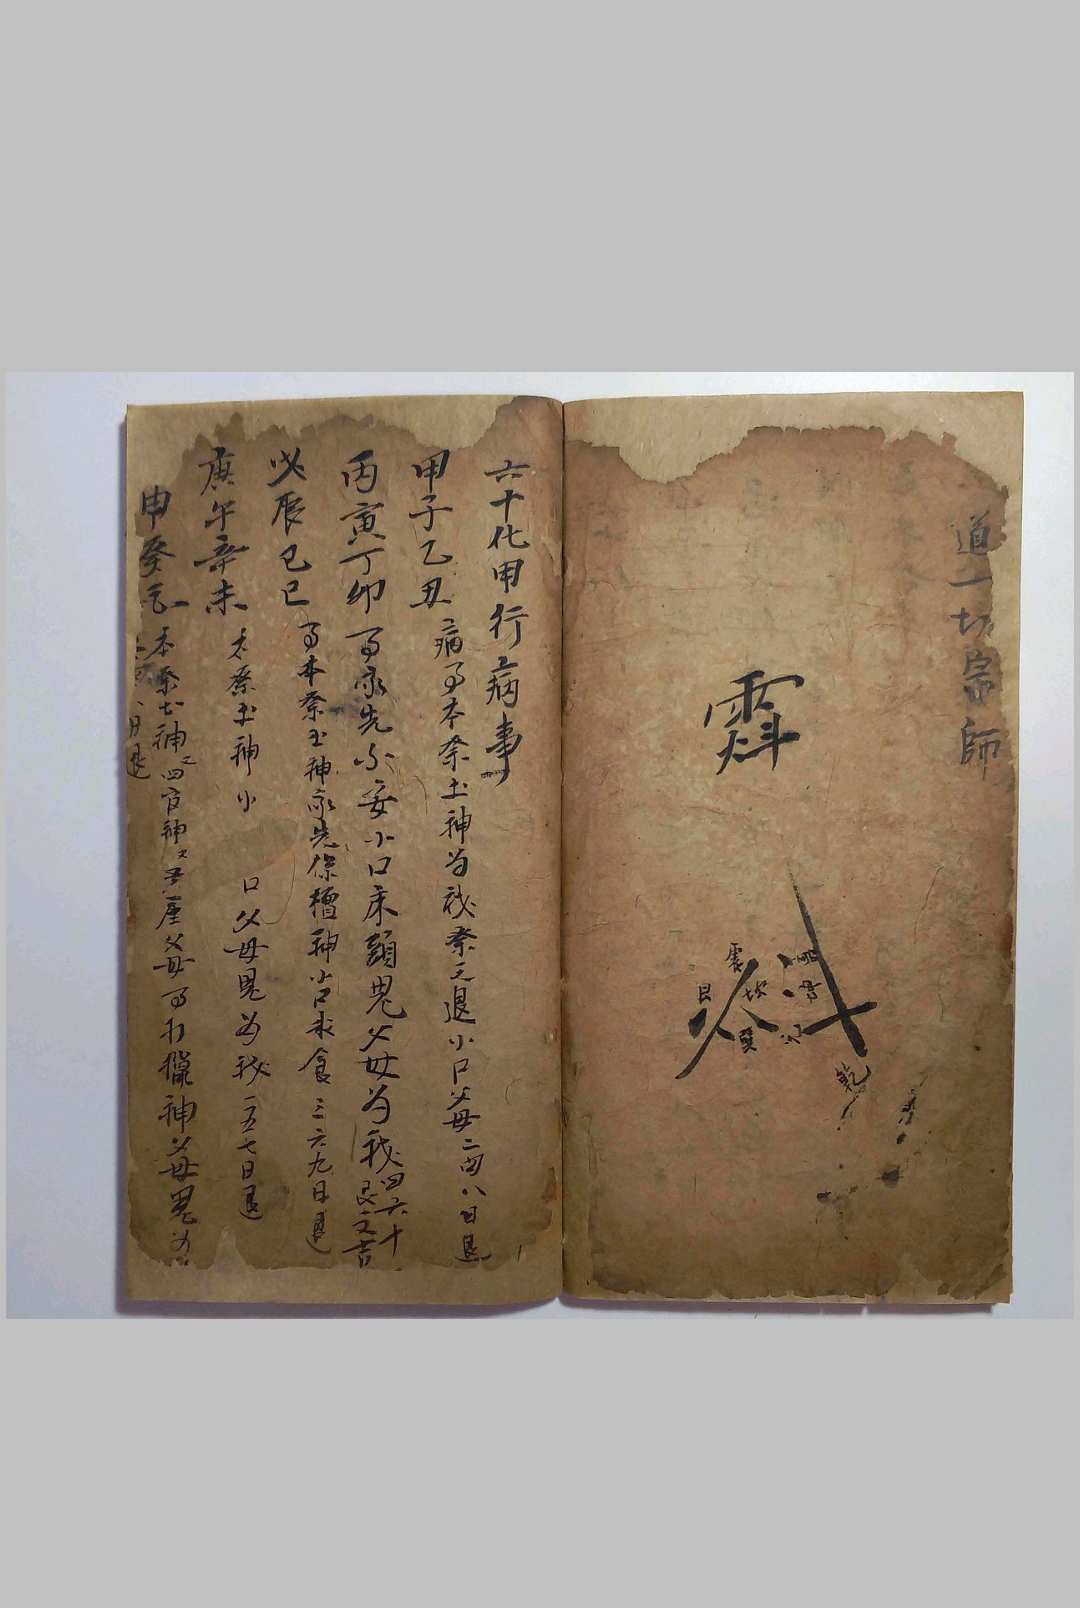 道一切宗師
震 坎 艮 巽 乾
六十化甲行病事
甲子乙丑 病了本祭土神为祸祭之退小口父母二四八日退
丙寅丁卯 了家先不安小口床頭鬼父母为祸四六十
戊辰己巳 了本祭土神家先保檀神小口求食三六九日退
庚午辛未 本祭土神小口父母鬼为祸一五七日退
申癸 本祭土神四官神 父母了打獵神父母鬼为
八日退